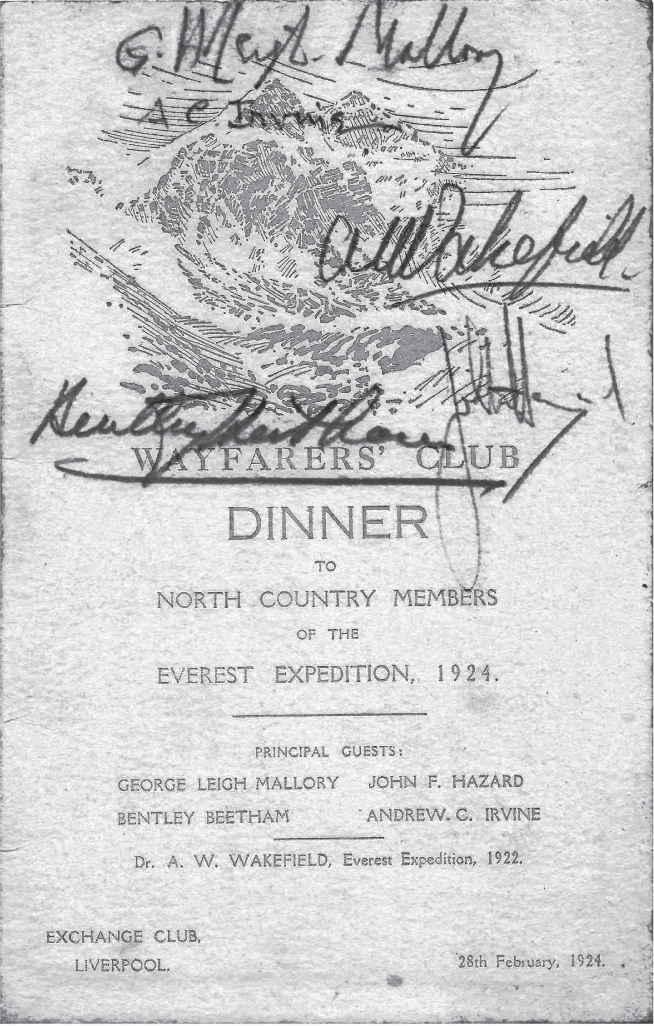 G. H Leigh-Mallory
A C. Irvine
AW Wakefield.
Bentley Beetham
WAYFARERS' CLUB
DINNER
TO
NORTH COUNTRY MEMBERS
OF THE
EVEREST EXPEDITION, 1924.
PRINCIPAL GUESTS:
GEORGE LEIGH MALLORY JOHN F. HAZARD
BENTLEY BEETHAM ANDREW. C. IRVINE
Dr. A. W. WAKEFIELD, Everest Expedition, 1922.
EXCHANGE CLUB,
LIVERPOOL.
28th February, 1924.